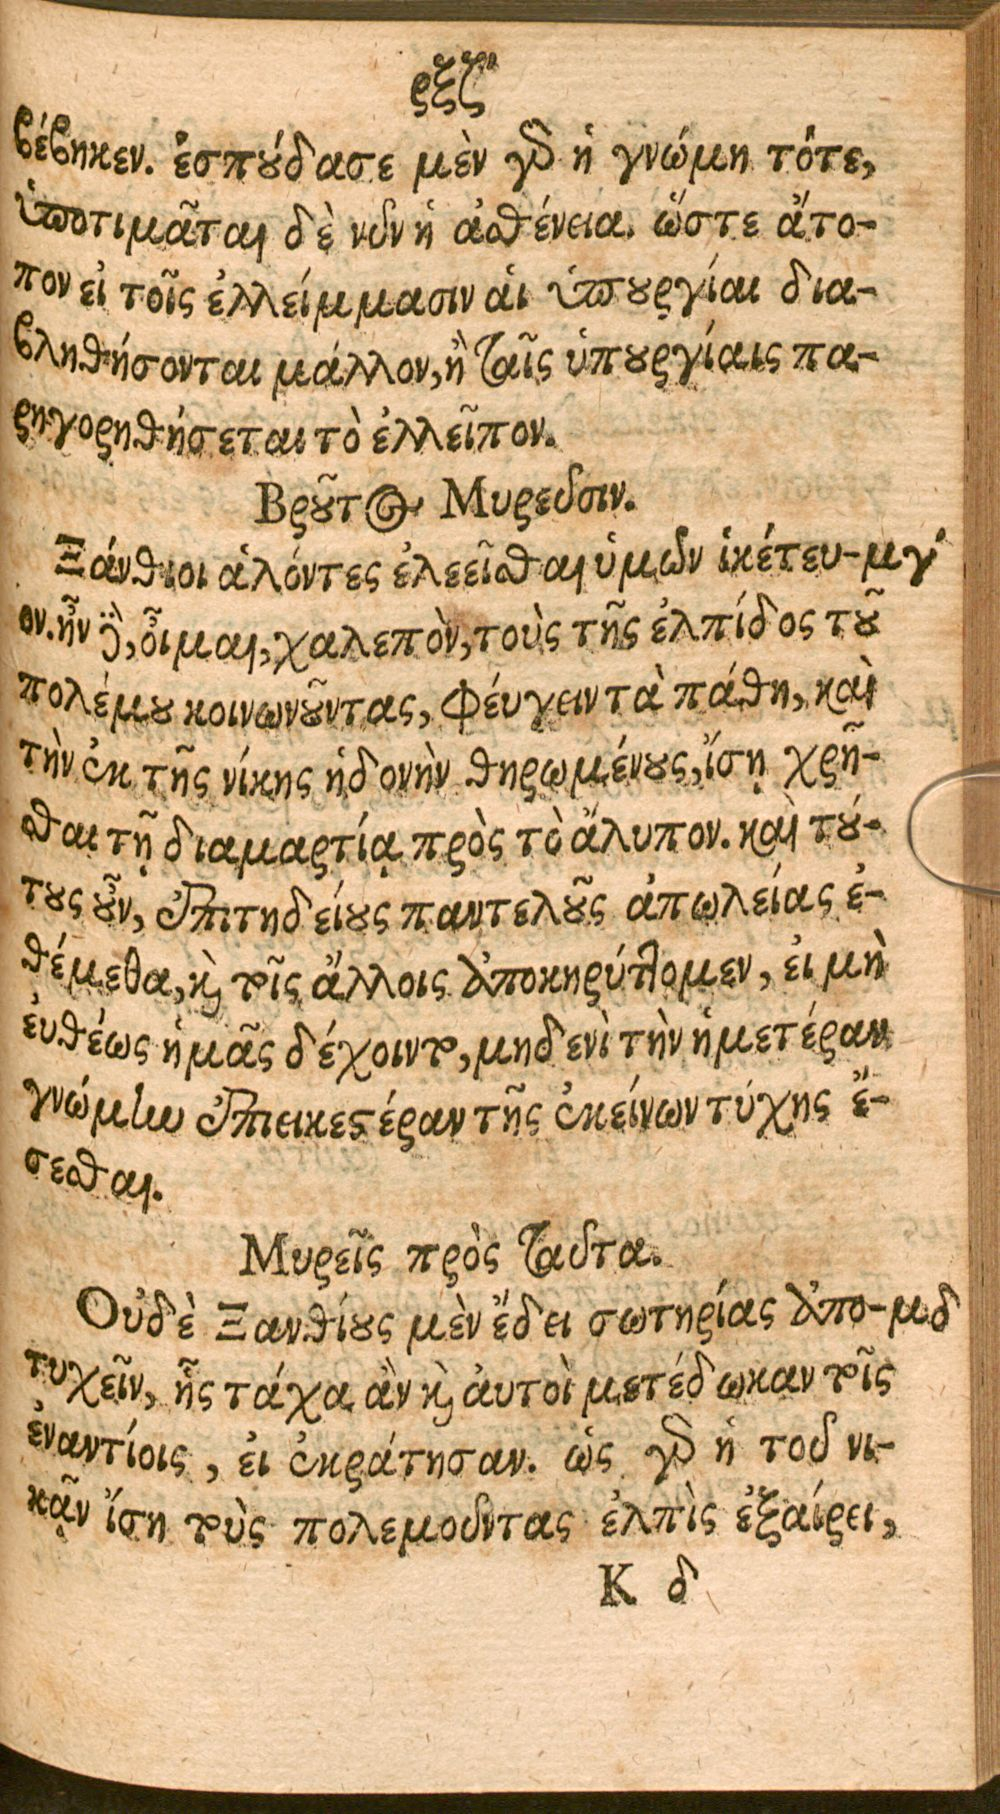 ρξζʹ
βέβηκεν. ἐσπούδασε μὲν γὰρ ἡ γνώμη τότε,
ὑποτιμᾶται δὲ νῦν ἡ ἀσθένεια. ὥστε ἄτο-
πον εἰ τοῖς ἐλλείμμασιν αἱ ὑπουργίαι δια-
βληθήσονται μάλλον, ἢ ταῖς ὑπουργίαις πα-
ρηγορηθήσεται τὸ ἐλλεῖπον.
Βροῦτος Μυρεῦσιν.
Ξάνθιοι ἁλόντες ἐλεεῖσθαι ὑμῶν ἱκέτευ- μγʹ
ον. ἦν δὲ, οἶμαι, χαλεπὸν, τοὺς τῆς ἐλπίδος τοῦ
πολέμου κοινωνοῦντας, φέυγειν τὰ πάθη, καὶ
τὴν ἐκ τῆς νίκης ἡδονὴν θηρωμένους, ἴσῃ χρῆ-
σθαι τῇ διαμαρτίᾳ πρὸς τὸ ἄλυπον. καὶ τού-
τους οὖν, ἐπιτηδείους παντελοῦς ἀπωλείας ἐ-
θέμεθα, καὶ τοῖς ἄλλοις ἀποκηρύττομεν, ἐι μὴ
ἐυθέως ἡμᾶς δέχοιντο, μηδενὶ τὴν ἡμετέραν
γνώμην ἐπιεικεστέραν τῆς ἐκείνων τύχης ἔ-
σεσθαι.
Μυρεῖς πρὸς ταῦτα.
Οὐδὲ Ξανθίους μὲν ἔδει σωτηρίας ἀπο- μδ
τυχεῖν, ἧς τάχα ἂν καὶ ἀυτοὶ μετέδωκαν τοῖς
ἐναντίοις, ἐι ἐκράτησαν. ὡς γὰρ ἡ τοῦ νι-
κᾷν ἴση τοὺς πολεμοῦντας ἐλπὶς ἐξαίρει,
Κ δ